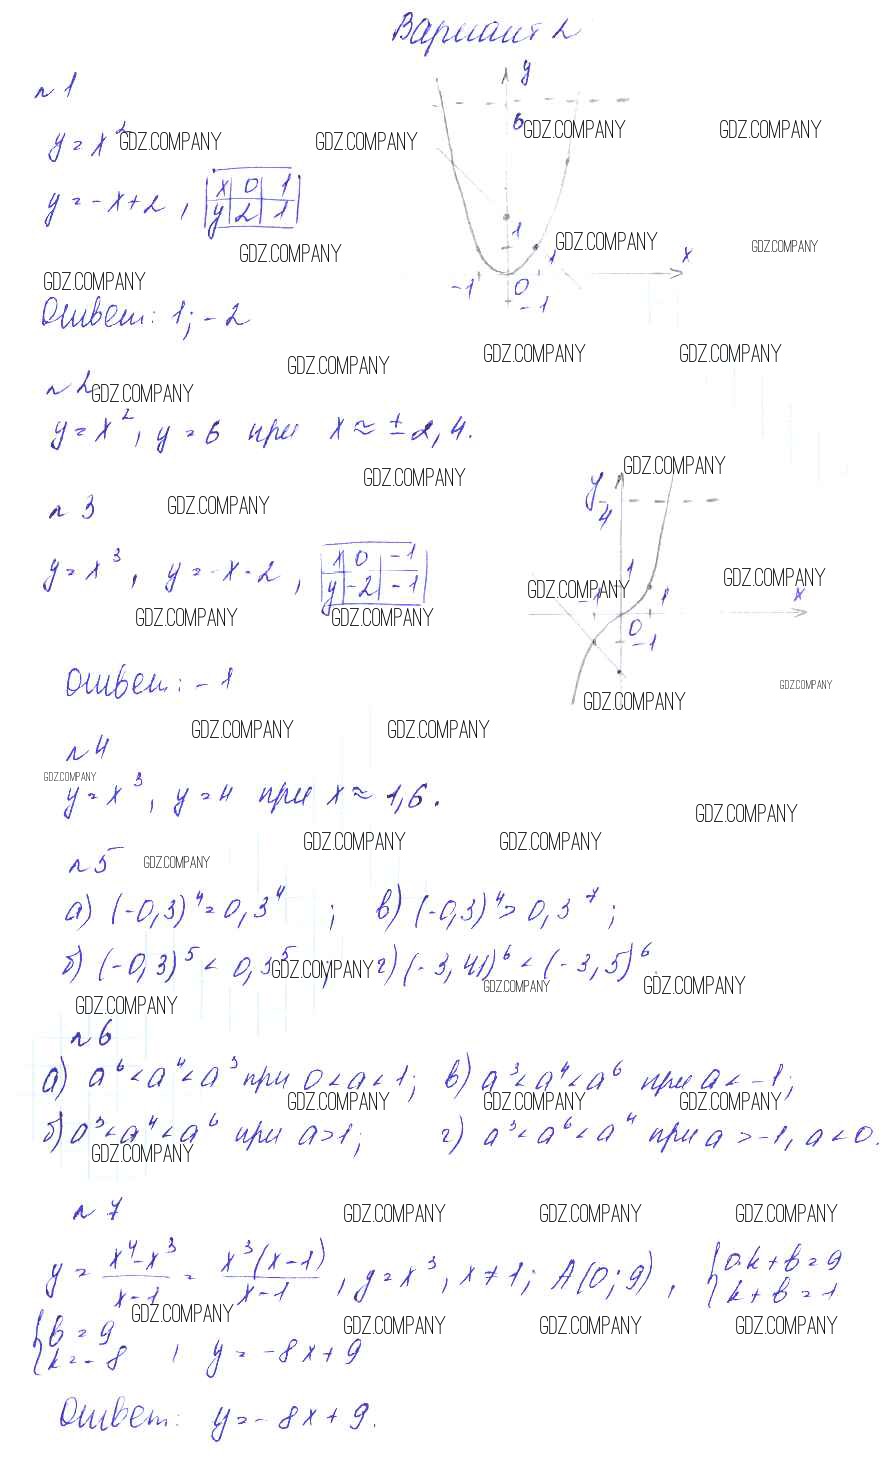 Вариант 2
№ 1
y = x² GDZ.COMPANY GDZ.COMPANY
y = -x+2, x 0 1
y 2 1
y
6 GDZ.COMPANY GDZ.COMPANY
1 GDZ.COMPANY GDZ.COMPANY
GDZ.COMPANY
x
-1 0 1
-1
GDZ.COMPANY
Ответ: 1; -2
GDZ.COMPANY GDZ.COMPANY GDZ.COMPANY
№ 2 GDZ.COMPANY
y = x², y = 6 при x ≈ ± 2,4.
GDZ.COMPANY GDZ.COMPANY
№ 3 GDZ.COMPANY
y = x³, y = -x-2, x 0 -1
y -2 -1
y
4
1
GDZ.COMPANY GDZ.COMPANY
-1 1 x
0
-1
GDZ.COMPANY GDZ.COMPANY
Ответ: -1
GDZ.COMPANY GDZ.COMPANY
GDZ.COMPANY GDZ.COMPANY
№ 4
GDZ.COMPANY
y = x³, y = 4 при x ≈ 1,6.
GDZ.COMPANY
GDZ.COMPANY GDZ.COMPANY
№ 5 GDZ.COMPANY
а) (-0,3)⁴ = 0,3⁴ ; в) (-0,3)⁴ > 0,3⁷ ;
б) (-0,3)⁵ < 0,3⁵ ; г) (-3,41)⁶ < (-3,5)⁶
GDZ.COMPANY GDZ.COMPANY GDZ.COMPANY
GDZ.COMPANY
№ 6
а) a⁶ < a⁴ < a³ при 0 < a < 1; в) a³ < a⁴ < a⁶ при a < -1;
GDZ.COMPANY GDZ.COMPANY GDZ.COMPANY
б) a³ < a⁴ < a⁶ при a > 1; г) a³ < a⁶ < a⁴ при a > -1, a < 0.
GDZ.COMPANY
№ 7
GDZ.COMPANY GDZ.COMPANY GDZ.COMPANY
y = (x⁴-x³)/(x-1) = x³(x-1)/(x-1), y = x³, x ≠ 1; A(0; 9), { 0·k + b = 9
k + b = 1
GDZ.COMPANY GDZ.COMPANY GDZ.COMPANY GDZ.COMPANY
{ b = 9
k = -8 , y = -8x+9
Ответ: y = -8x+9.